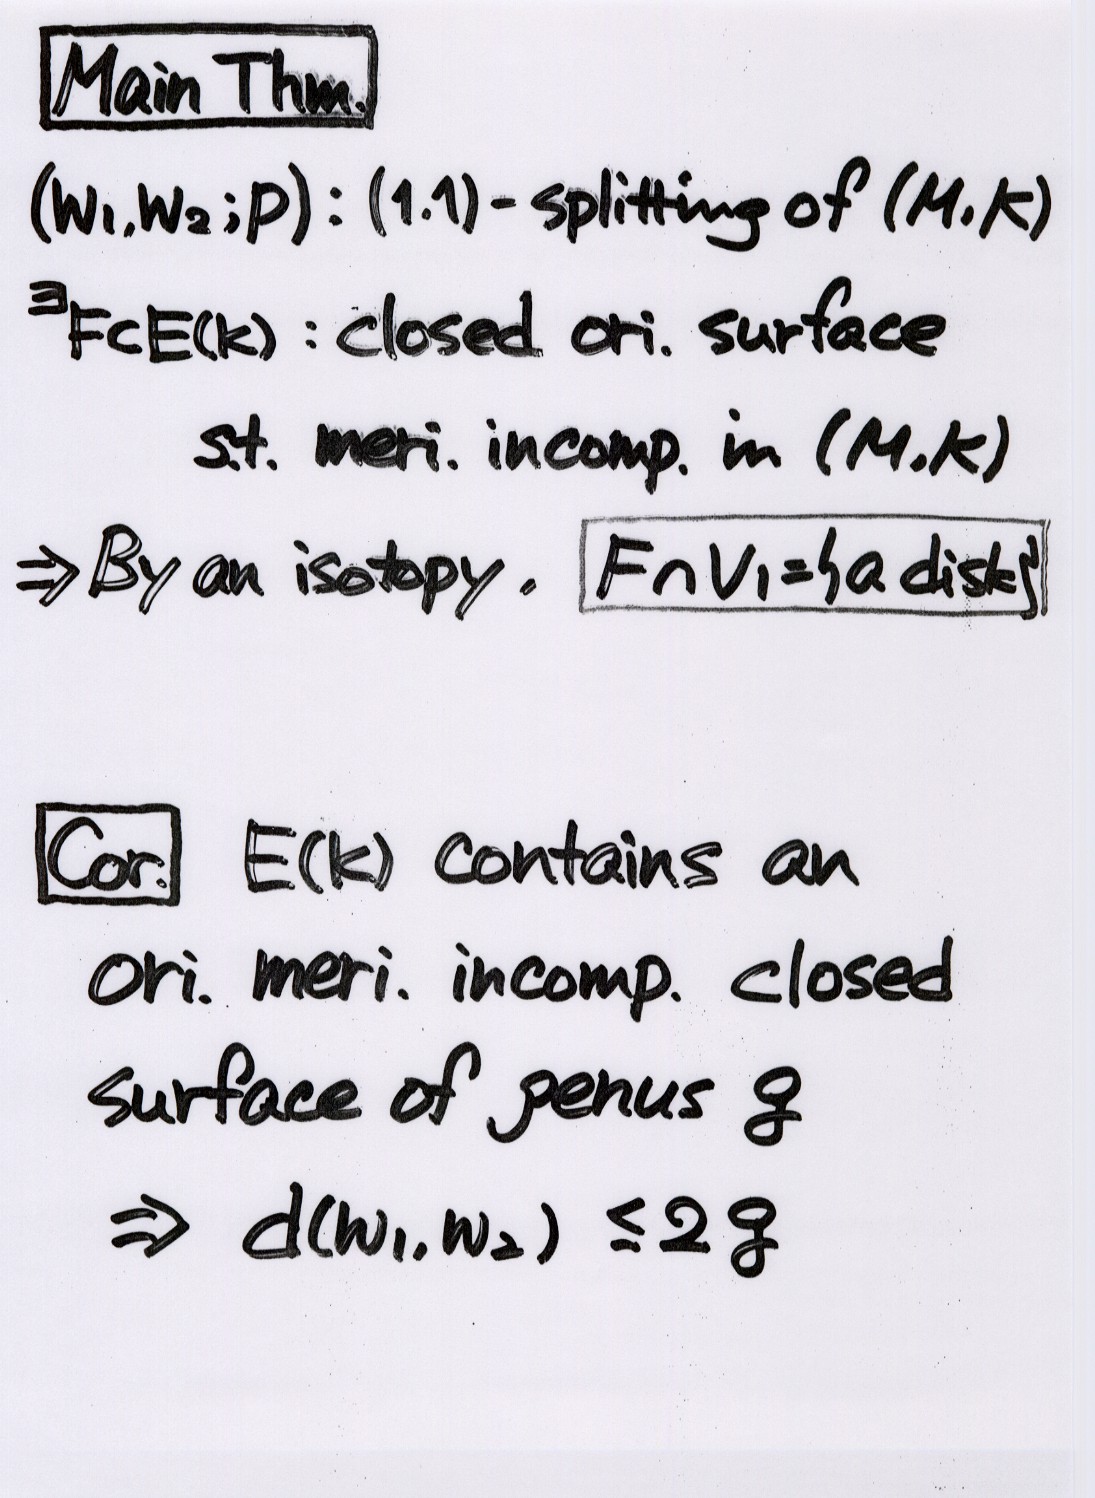 Main Thm.
(W₁,W₂;P): (1.1)-splitting of (M.K)
∃F⊂E(K) : closed ori. surface
s.t. meri. incomp. in (M.K)
⇒ By an isotopy. F∩V₁={a disk}
Cor. E(K) contains an
ori. meri. incomp. closed
surface of genus g
⇒ d(W₁.W₂) ≤2g